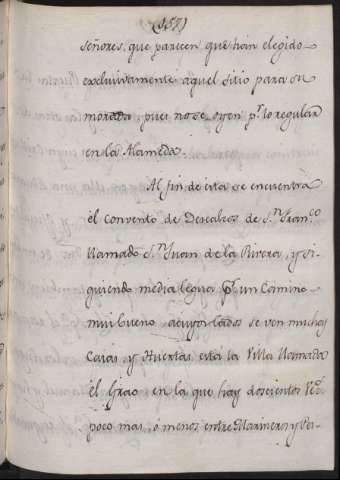 (157)
señores, que parecen que han elegido
exclusivamente aquel sitio para su
morada, pues no se oyen p.r lo regular
en la Alameda.
Al fin de esta se encuentra
el Convento de Descalzos de S.n Fran.co
llamado S.n Juan de la Rivera, y si-
guiendo media legua p.r un Camino
mui bueno, acuyos lados se ven muchas
Casas, y Huertas esta la Villa llamada
el Grao, en la que hay doscientos Vec.s
poco mas, o menos entre Marineros, y Pes-